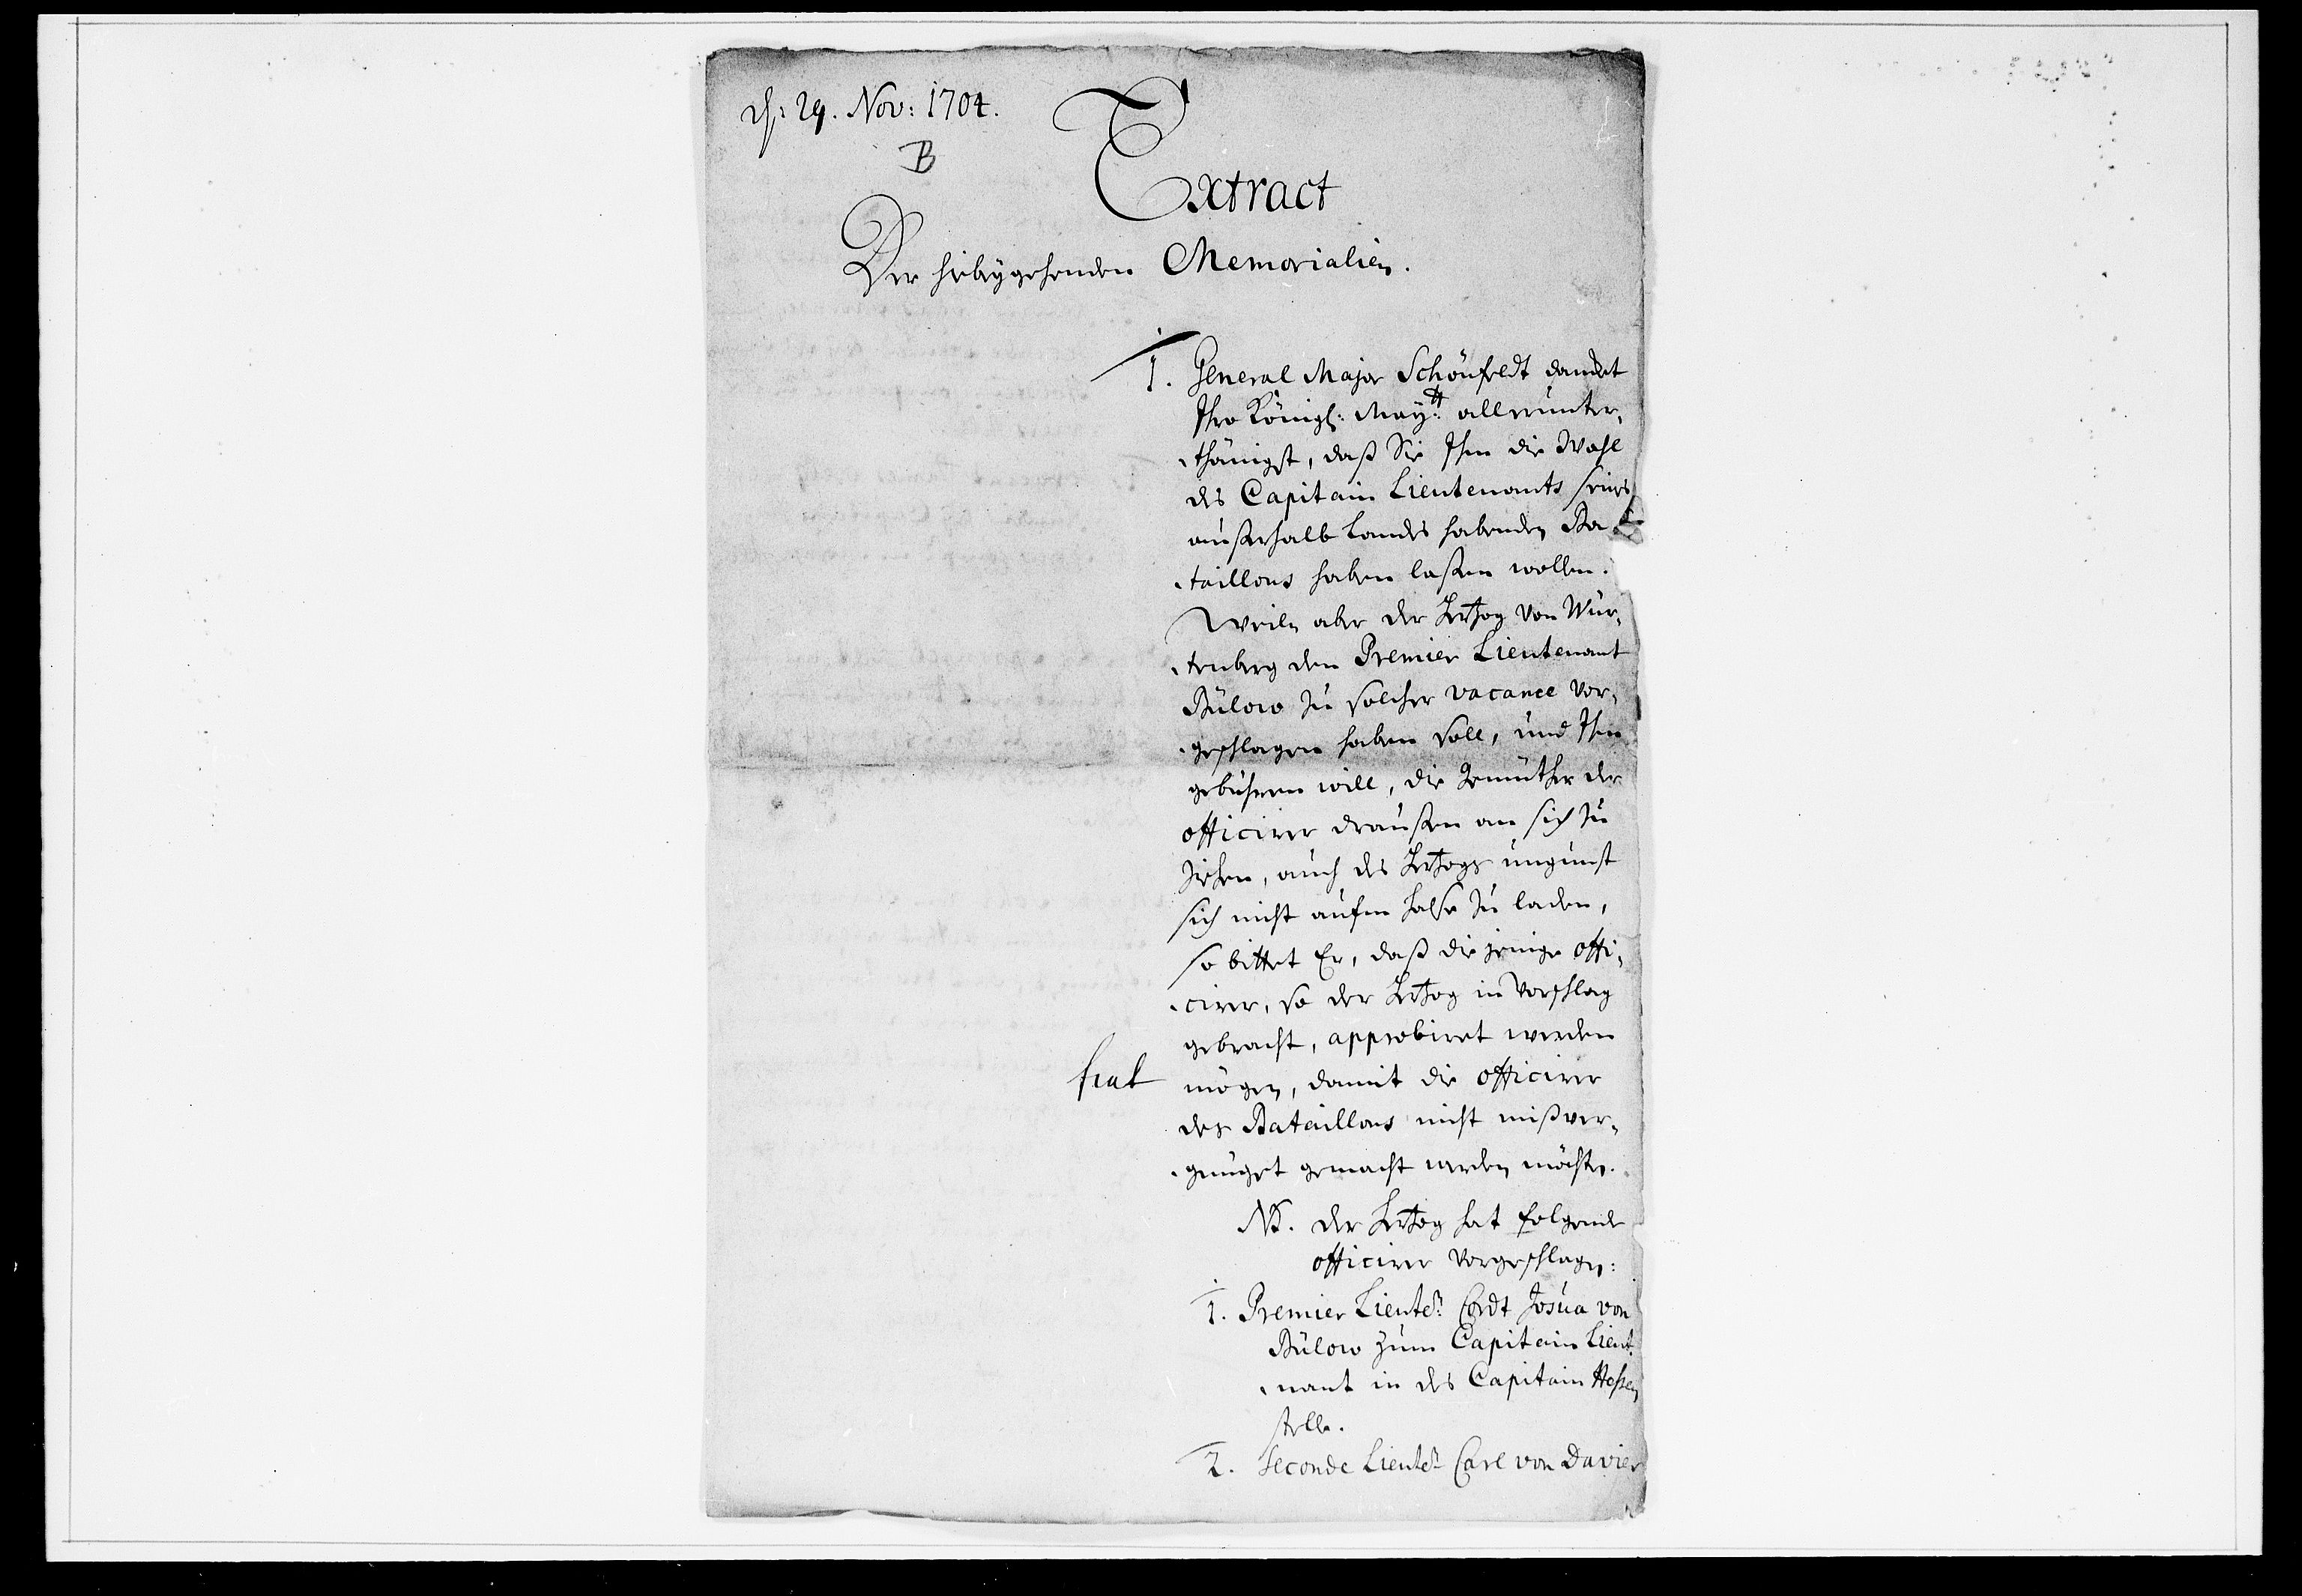 d: 29. Nov: 1704.
B
Extract
Der hiebeÿgehenden Memorialien.
1. General Major Schönfeldt dancket
Ihro Königl: Maÿ:tt allerunter,
,thänigst, daß Sie Ihm die Wahl
des Capitain Lieutenants seines
außerhalb Landes habenden Bat
,taillons haben laßen wollen.
Weiln aber der Hertzog von Wür,
,tenberg den Premier Lieutenant
Bülow zu solcher vacance vor,
,geschlagen haben soll, und Ihm
gebühren will, die Gemüther der
officirer draußen an sich zu
ziehen, auch des Hertzogs ungunst
sich nicht aufm Halse zu laden,
so bittet Er, daß die jenige offi,
,cirer, so der Hertzog in Vorschlag
gebracht, approbiret werden
fiat
mögen, damit die officirer
des Bataillons nicht mißver,
,gnüget gemacht werden möchten.
NB. der Hertzog hat folgende
officirer Vorgeschlagen:
1. Premier Lieutent Cordt Josua von
Bülow zum Capitain Lieut
,nant in des Capitain Hessen
stelle.
2. Seconde Lieutent Carl von Davier